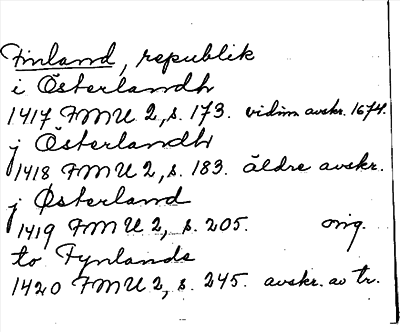 Finland, republik
i Österlandh
1417 FMU 2, s. 173. vidim avskr. 1674.
j Österlandh
1418 FMU 2, s. 183. äldre avskr.
j Østerland
1419 FMU 2, s. 205. orig.
to Fynlands
1420 FMU 2, s. 245. avskr. av tr.